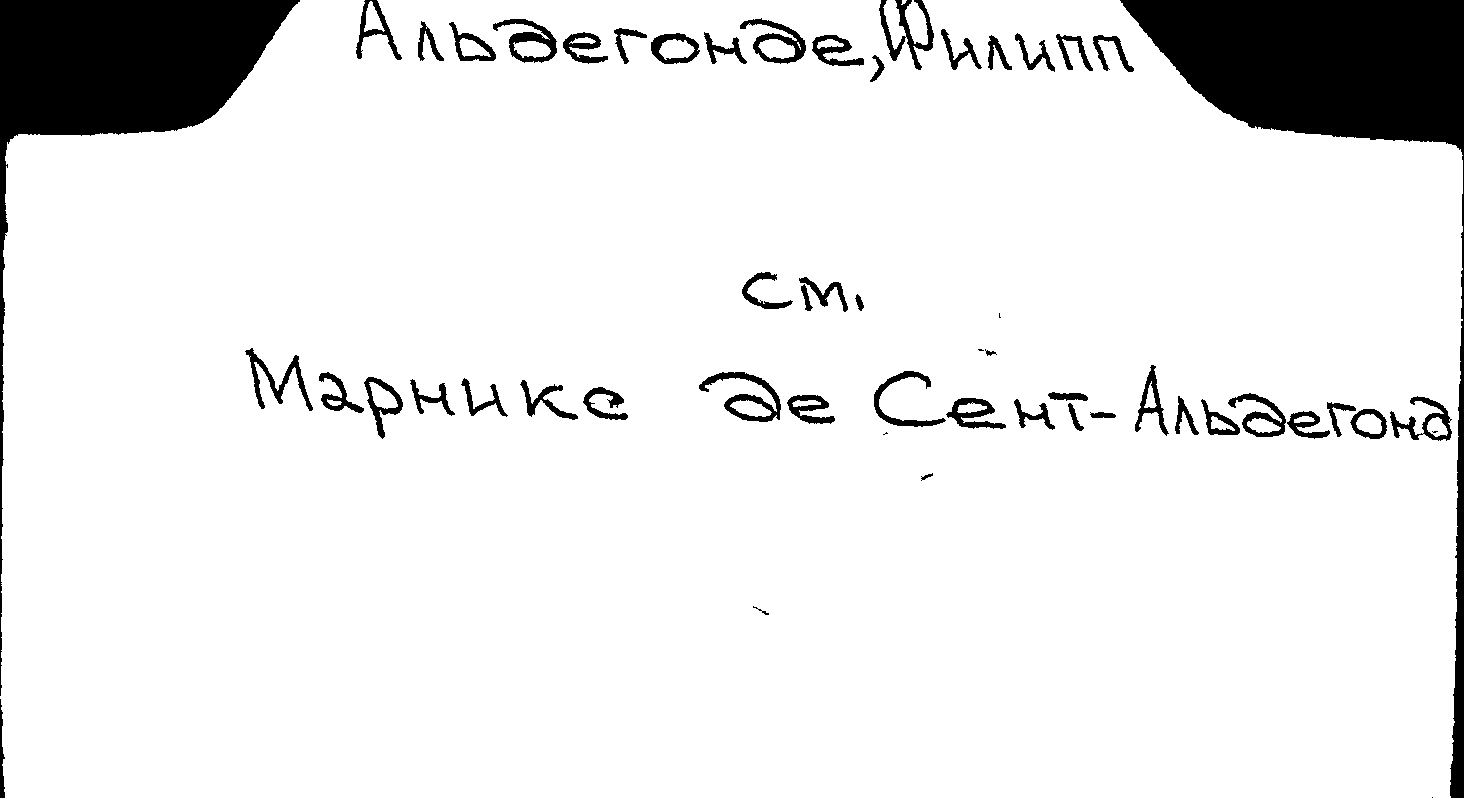 Альдегонде, Филипп
см.
Марникс де Сент-Альдегонд